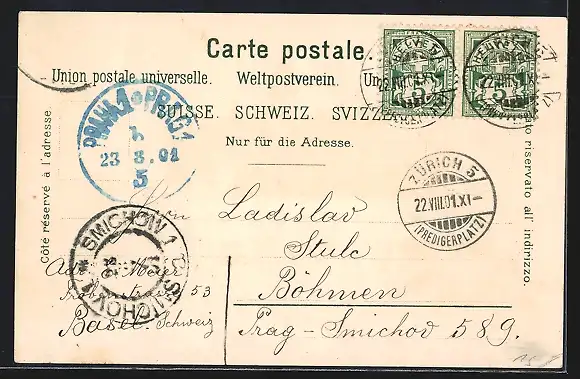 Carte postale.
Union postale universelle. Weltpostverein. Un
SUISSE. SCHWEIZ. SVIZZERA
Nur für die Adresse.
Côté réservé à l'adresse.
riservato all' indirizzo.
5 5
PRAHA 1 PRAG 1
23 8. 01
5
ZÜRICH 5
22.VIII.01.XI-
(PREDIGERPLATZ)
SMICHOW 1
SMÍCHOV 1
Herrn Ladislav
Stulc
Böhmen
Prag-Smichov 589.
Adr. Meier
53
Basel Schweiz